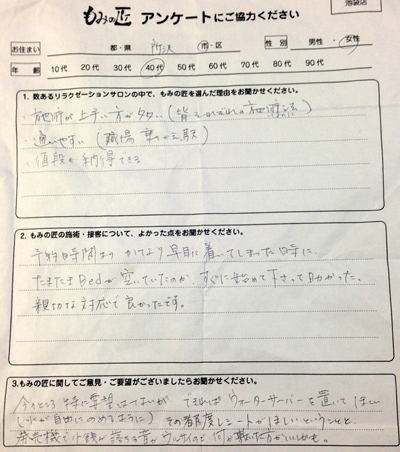 池袋店
もみの匠 アンケートにご協力ください
お住まい 都・県 所沢 市・区 性別 男性・女性
年齢 10代 20代 30代 40代 50代 60代 70代 80代 90代
1. 数あるリラクゼーションサロンの中で、もみの匠を選んだ理由をお聞かせください。
・施術が上手い方が多い(皆それぞれの
・通いやすい(職場
・値段も納得できる
2. もみの匠の施術・接客について、よかった点をお聞かせください。
予約時間よりかなり早目に着いてしまった時に、
たまたまBedが空いていたのか、すぐに始めて下さって助かった。
親切な対応で良かったです。
3. もみの匠に関してご意見・ご要望がございましたらお聞かせください。
今のところ特に要望はないが できれば ウォーターサーバーを置いてほしい
(水が自由にのめるように) その都度レシートがほしいということと、
券売機で小銭が落ちる音がウルサイので何か敷いた方がいいかも。